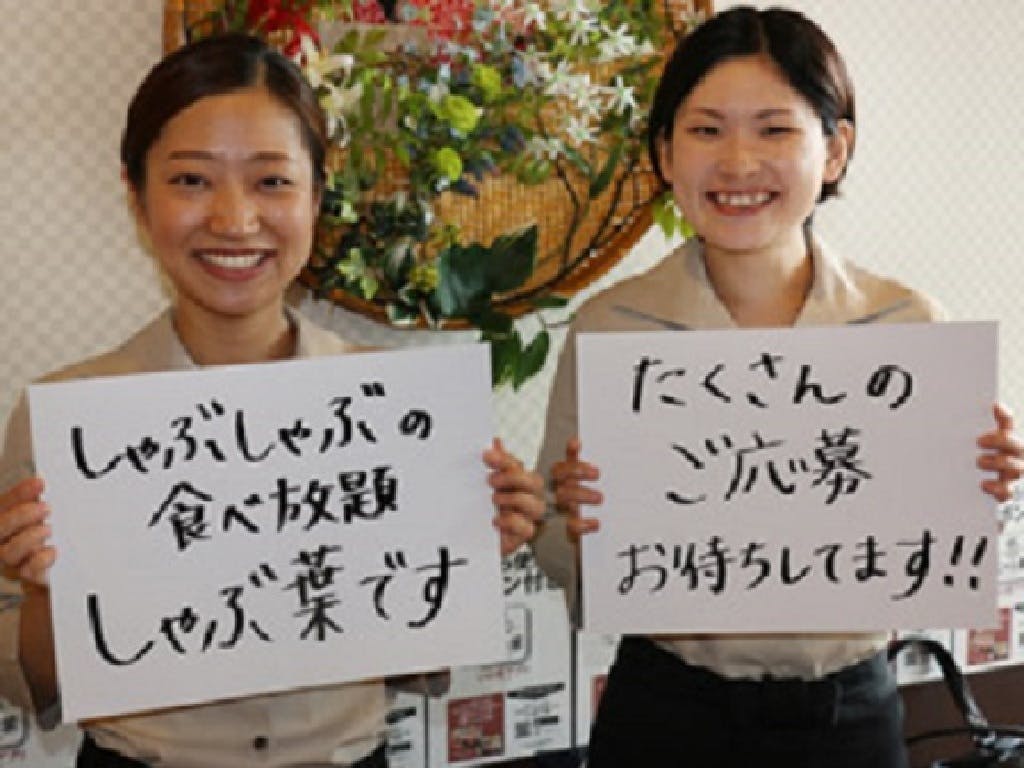 しゃぶしゃぶの
食べ放題
しゃぶ葉です
たくさんの
ご応募
お待ちしてます!!